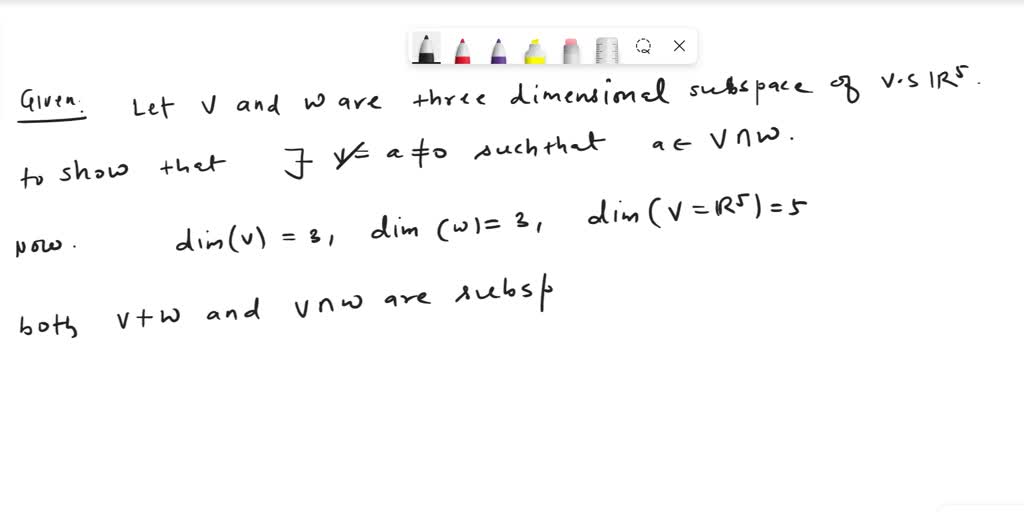 Given: Let V and W are three dimensional subspace of V.S ℝ⁵.
to show that ∃ a ≠ 0 such that a ∈ V ∩ W.
Now. dim(V) = 3, dim (W) = 3, dim (V = ℝ⁵) = 5
both V + W and V ∩ W are subsp